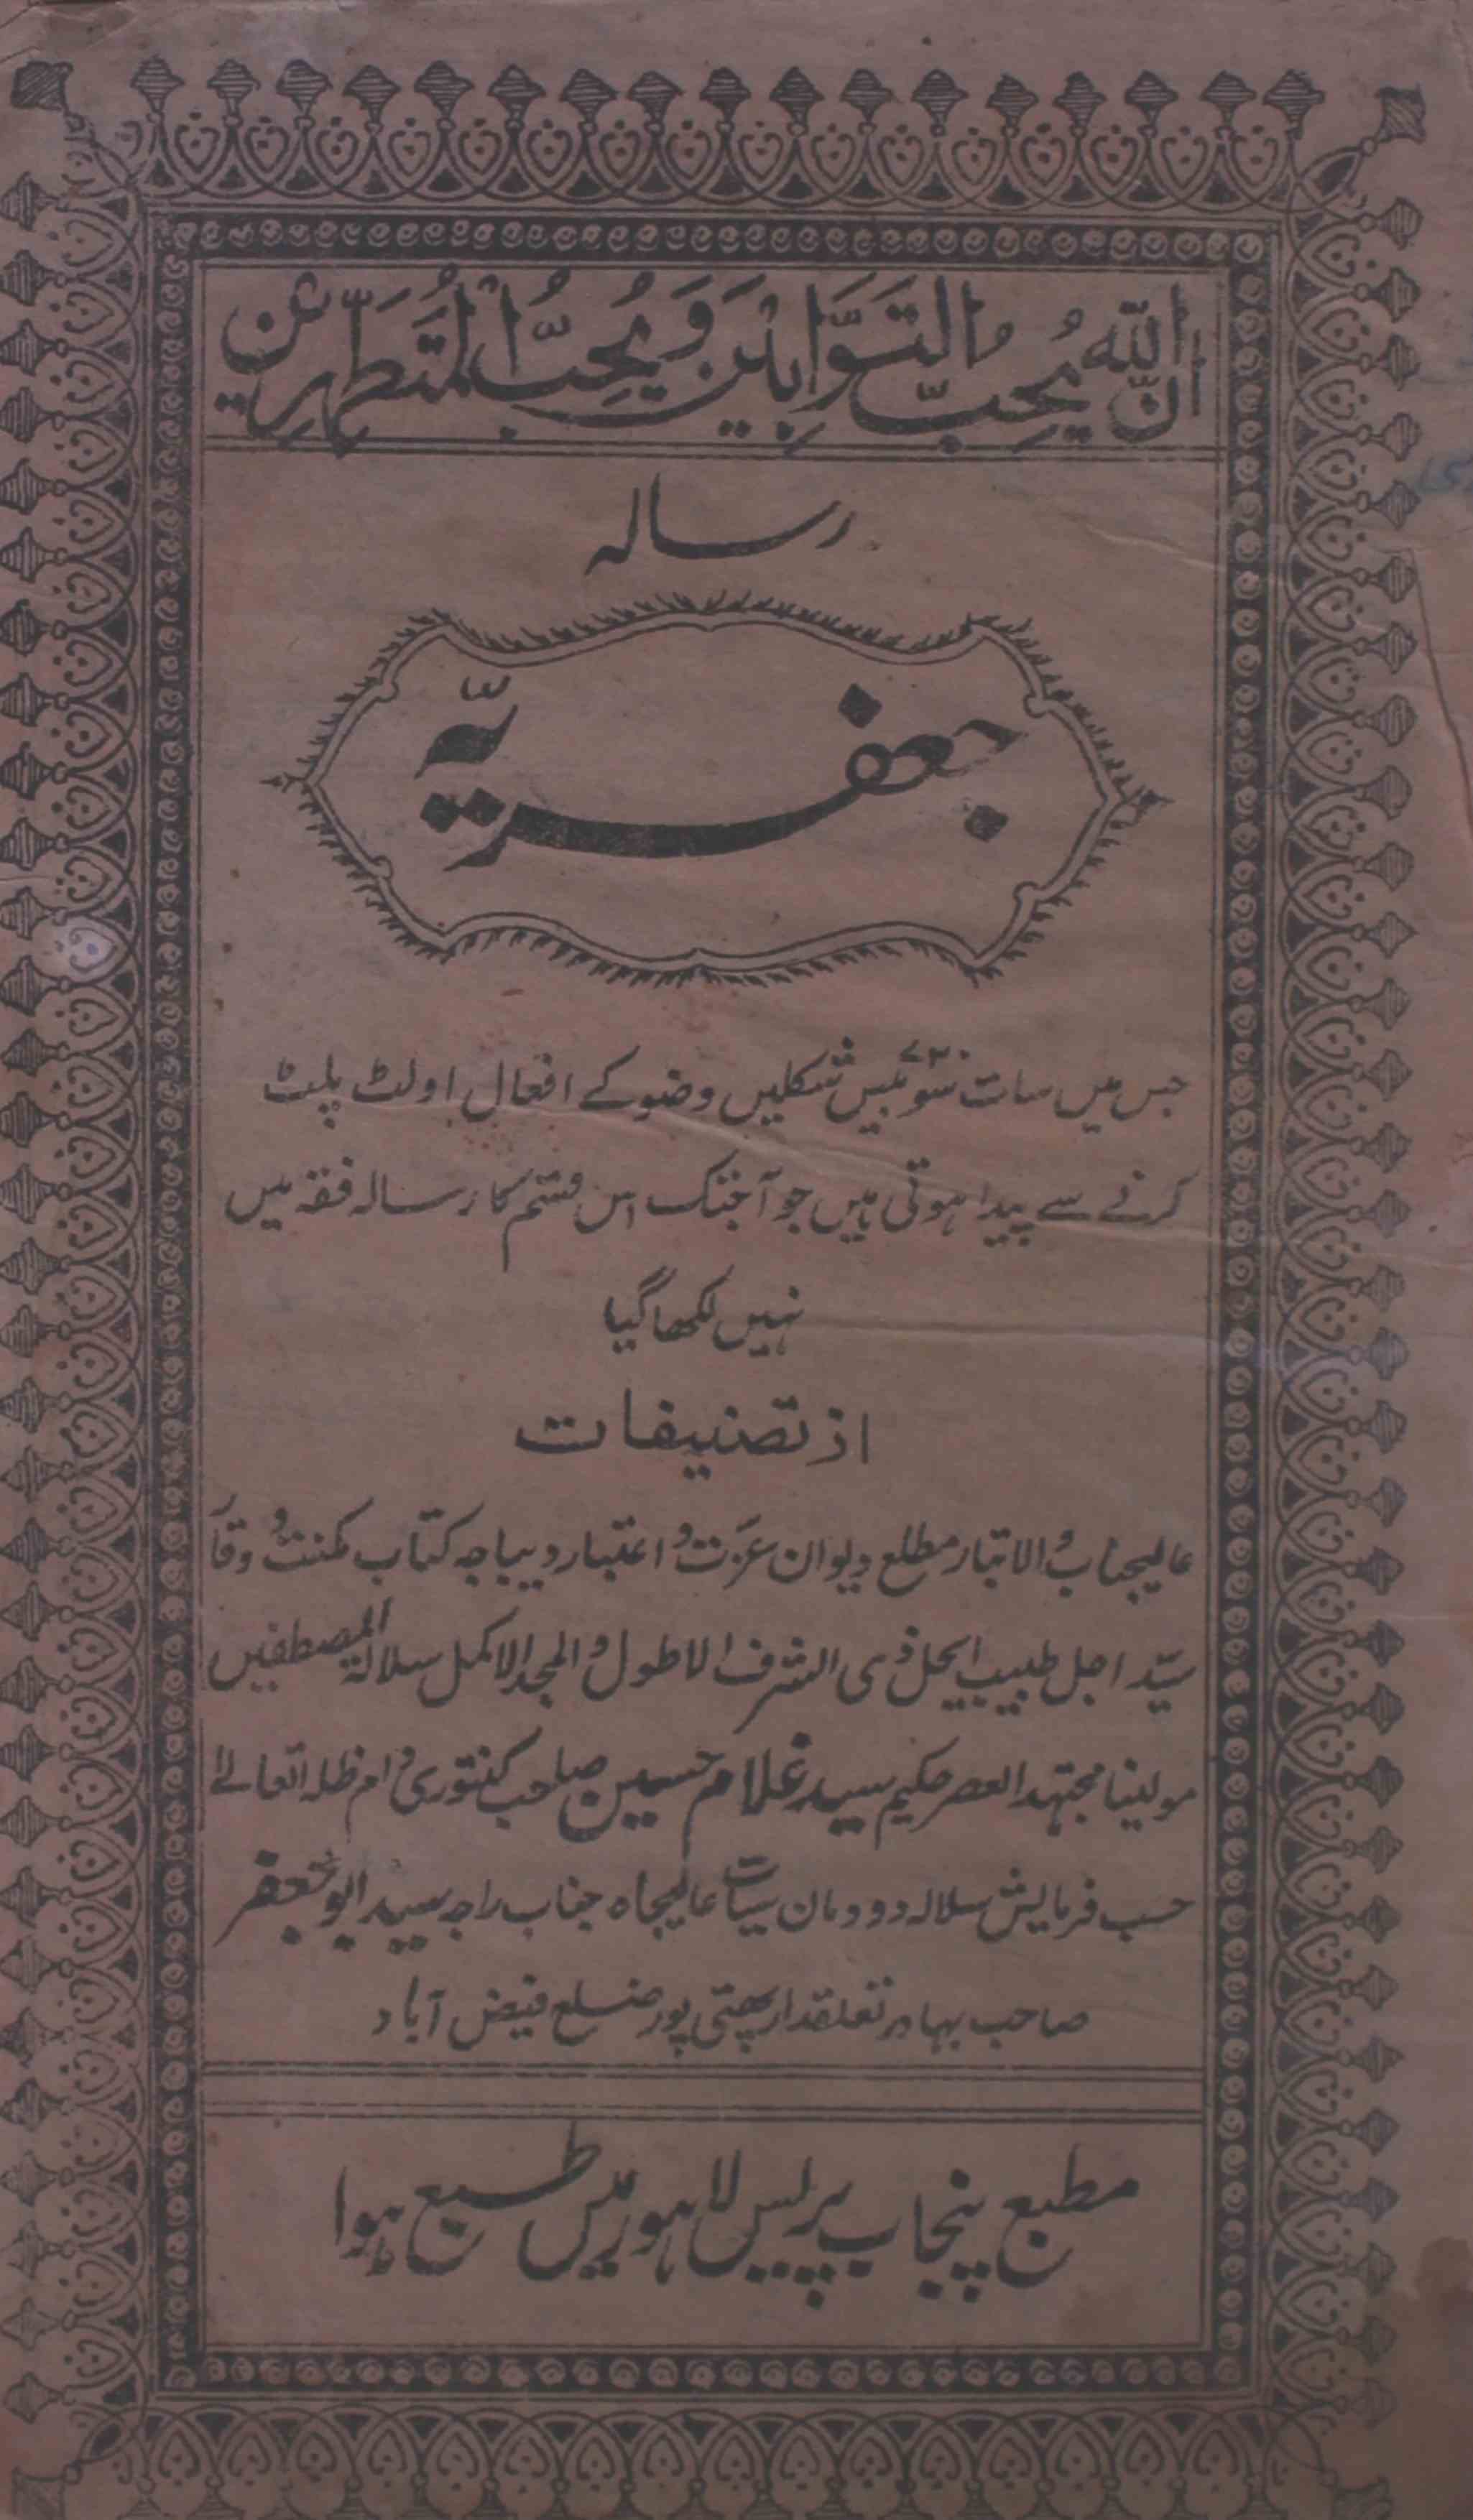 انّ اللّٰه يُحِبُّ التَّوَّابِيْنَ وَ يُحِبُّ الْمُتَطَهِّرِيْن
رسالہ
جعفریّہ
جس میں سات سَو بیس ۷۲۰ شکلیں وضو کے افعال اولٹ پلٹ
کرنے سے پیدا ہوتی ہیں جو آجتک اس قسم کا رسالہ فقہ میں
نہیں لکھا گیا
از تصنیفات
عالیجناب والاتبار مطلع دیوان عزت و اعتبار دیباجہ کتاب مکنت و وقار
سیّد اجل طبیب ذی الشرف الاطول والمجد الاکمل سلالۃ المصطفین
مولینا مجتہد العصر حکیم سید غلام حسین صاحب کنتوری دام ظلہ العالے
حسب فرمایش سلالہ دودمان سیادت عالیجاہ جناب راجہ سید ابو جعفر
صاحب بہادر تعلقدار پور ضلع فیض آباد
مطبع پنجاب پریس لاہور میں طبع ہوا